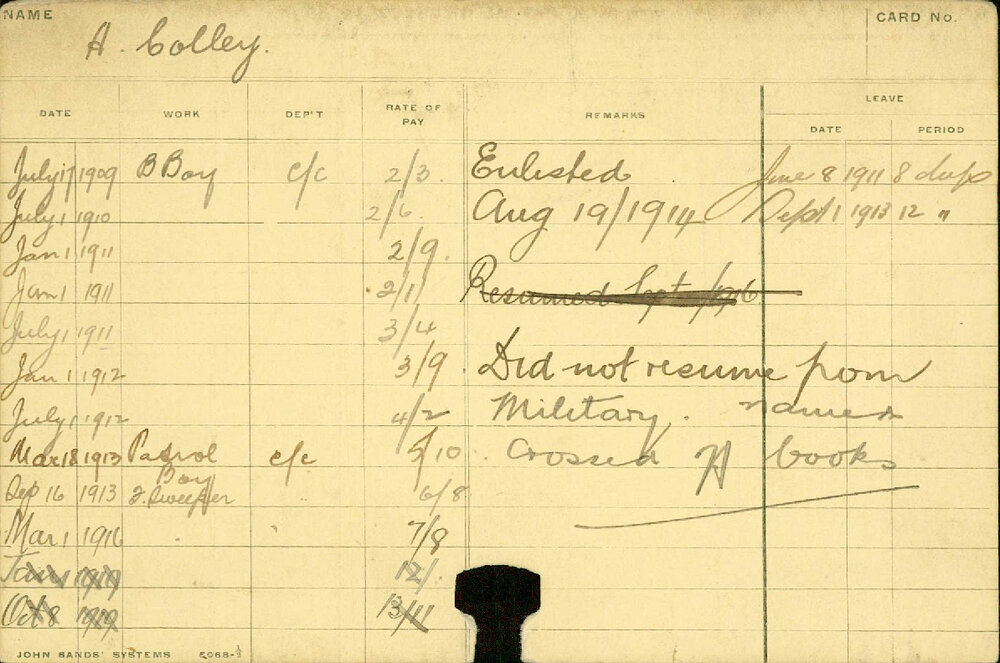 NAME
A. Colley.
CARD No.
DATE WORK DEP'T RATE OF PAY REMARKS LEAVE
DATE PERIOD
July 17 1909 B Boy c/c 2/3 Enlisted June 8 1911 8 days
July 1 1910 2/6 Aug 19/1914 Sept 1 1913 12 "
Jan 1 1911 2/9.
Jan 1 1911 2/11 Resumed Sept /1916
July 1 1911 3/4
Jan 1 1912 3/9 Did not resume from
July 1 1912 4/2 Military. names
Mar 18 1913 Patrol c/c 5/10 Crossed books
Boy
Sep 16 1913 F. Sweeper 6/8
Mar 1 1916 7/8
Jan 1 1919 12/.
Oct 8 1919 13/11
JOHN SANDS' SYSTEMS 5068-½